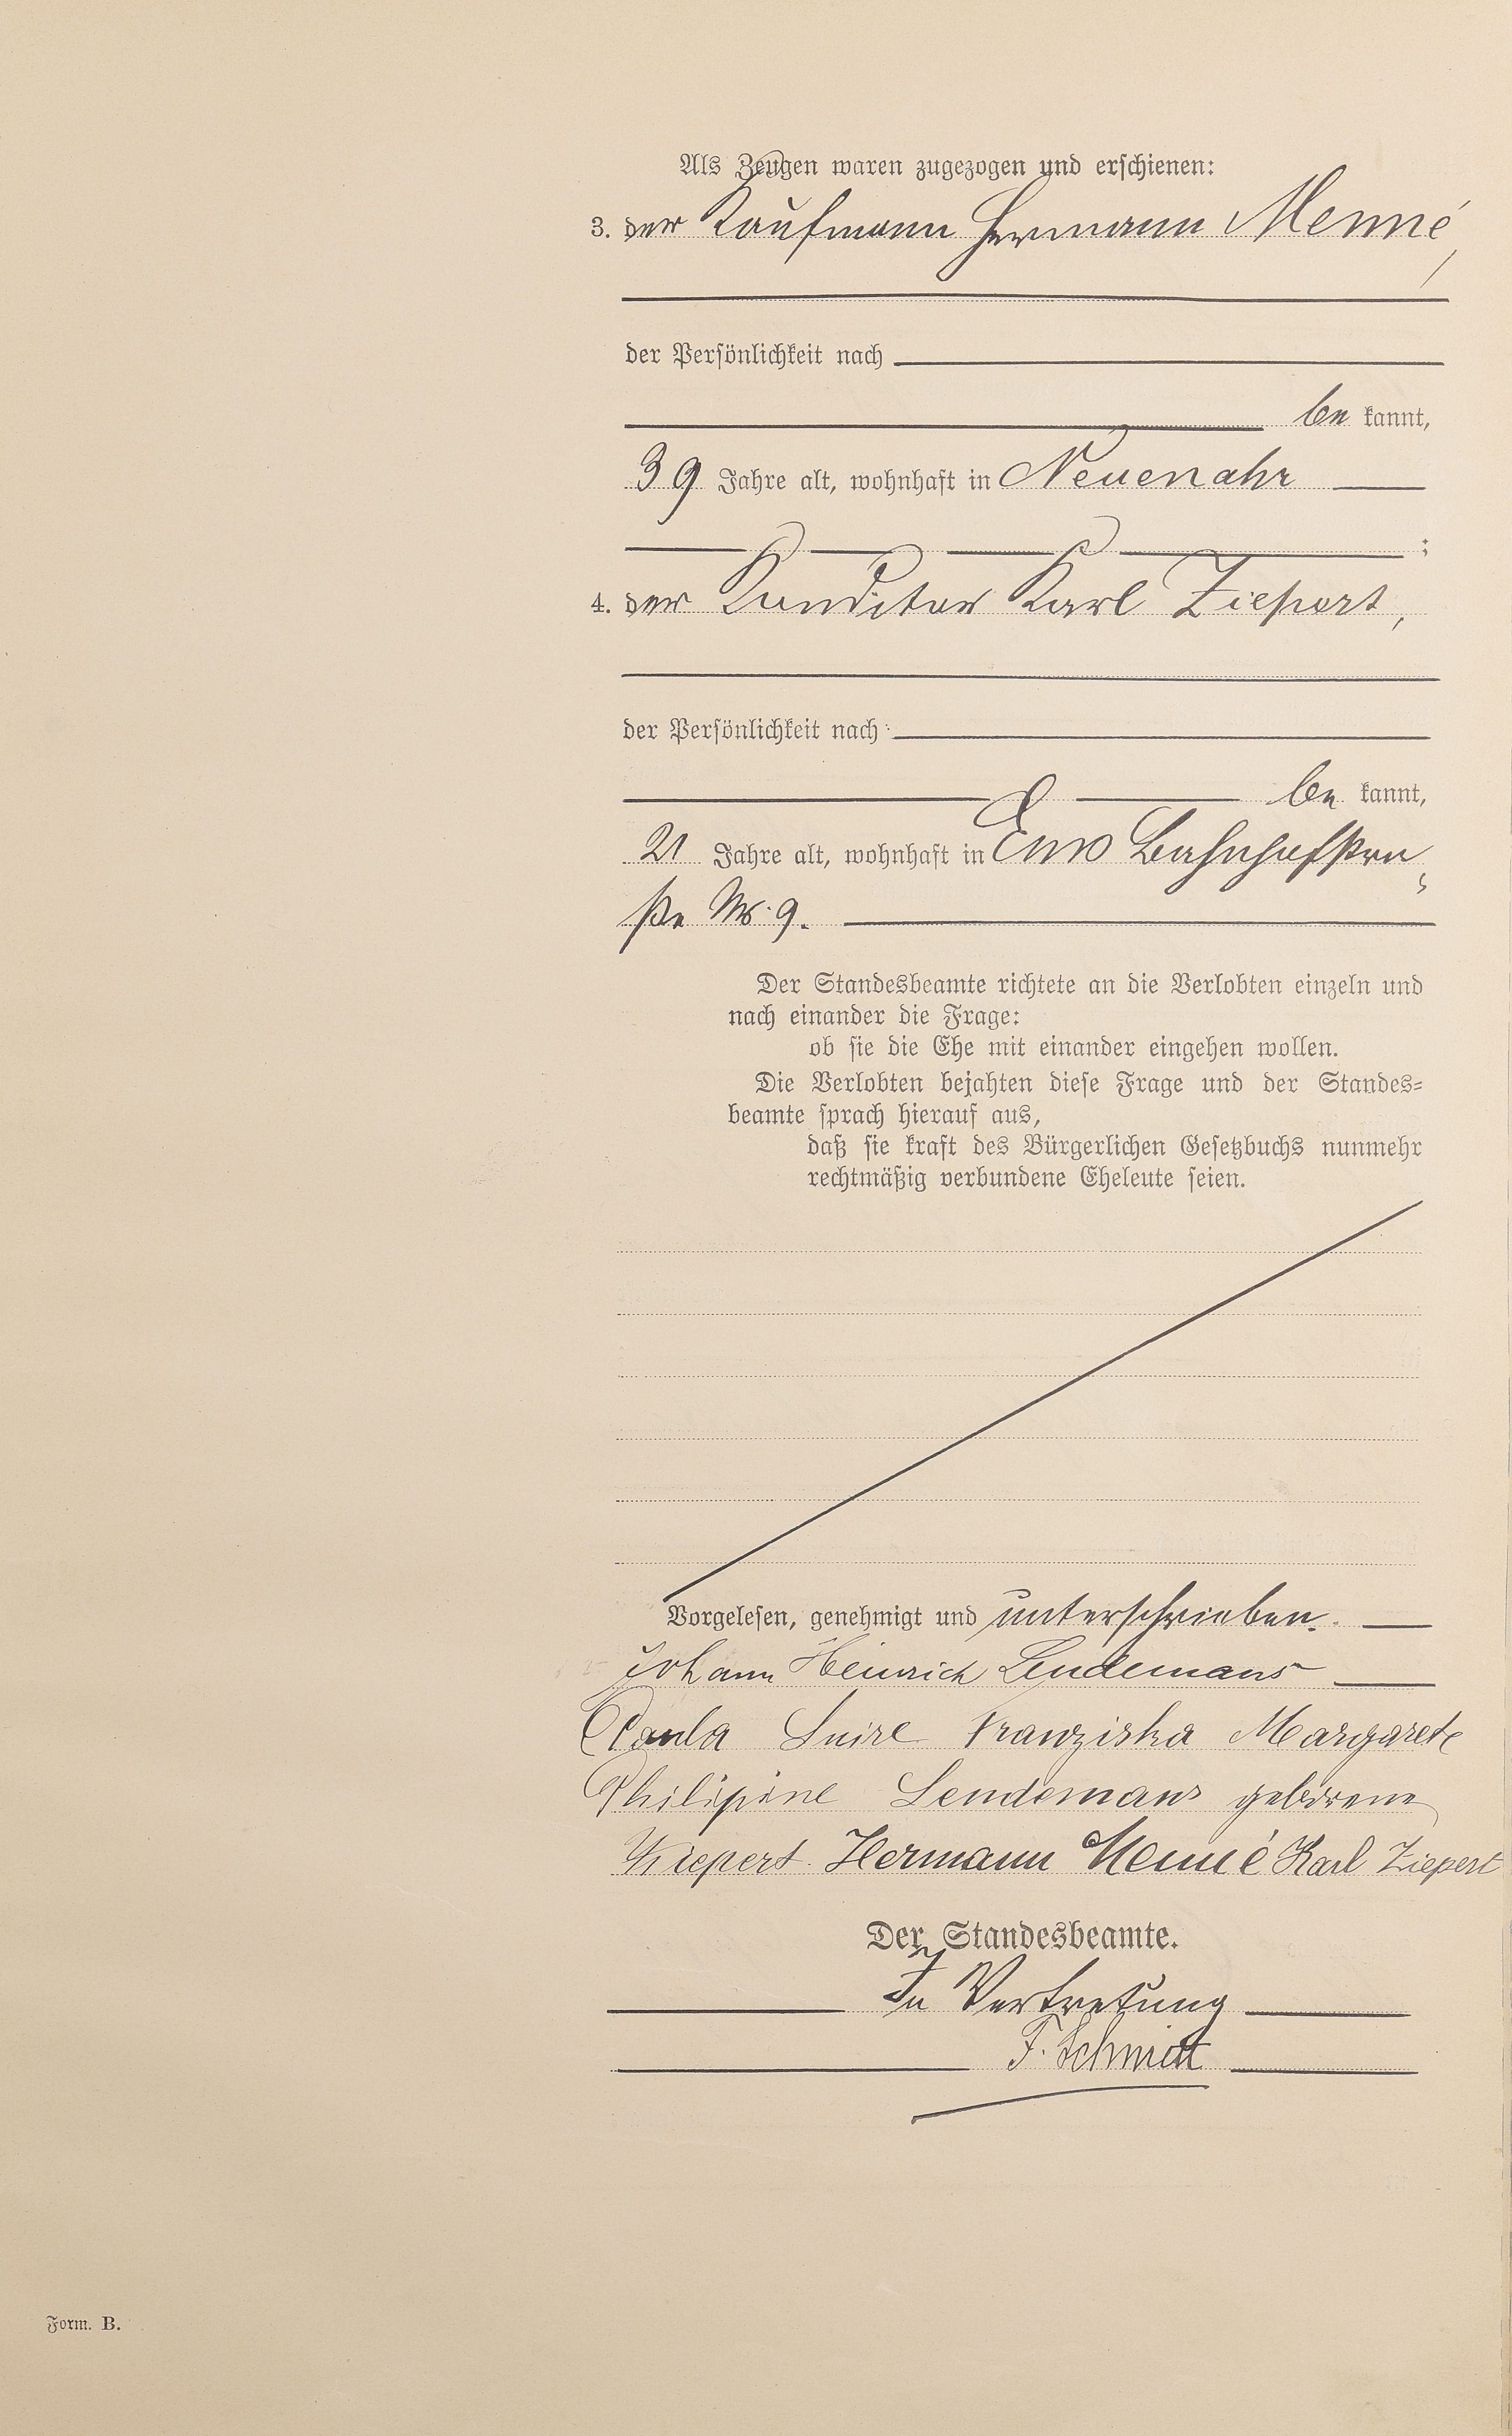 Als Zeugen waren zugezogen und erschienen:
3. der Kaufmann Hermann Menné,
der Persönlichkeit nach
be kannt,
39 Jahre alt, wohnhaft in Neuenahr
;
4. der Konditor Karl Ziepert,
der Persönlichkeit nach
be kannt,
21 Jahre alt, wohnhaft in Ems Bahnhofstra
ße Nr. 9.
Der Standesbeamte richtete an die Verlobten einzeln und
nach einander die Frage:
ob sie die Ehe mit einander eingehen wollen.
Die Verlobten bejahten diese Frage und der Standes=
beamte sprach hierauf aus,
daß sie kraft des Bürgerlichen Gesetzbuchs nunmehr
rechtmäßig verbundene Eheleute seien.
Vorgelesen, genehmigt und unterschrieben.
Johann Heinrich Lendemans
Paula Luise Franziska Margarete
Philipine Lendemans geborene
Ziepert. Hermann Menné Karl Ziepert
Der Standesbeamte.
In Vertretung
F. Schmidt
Form. B.